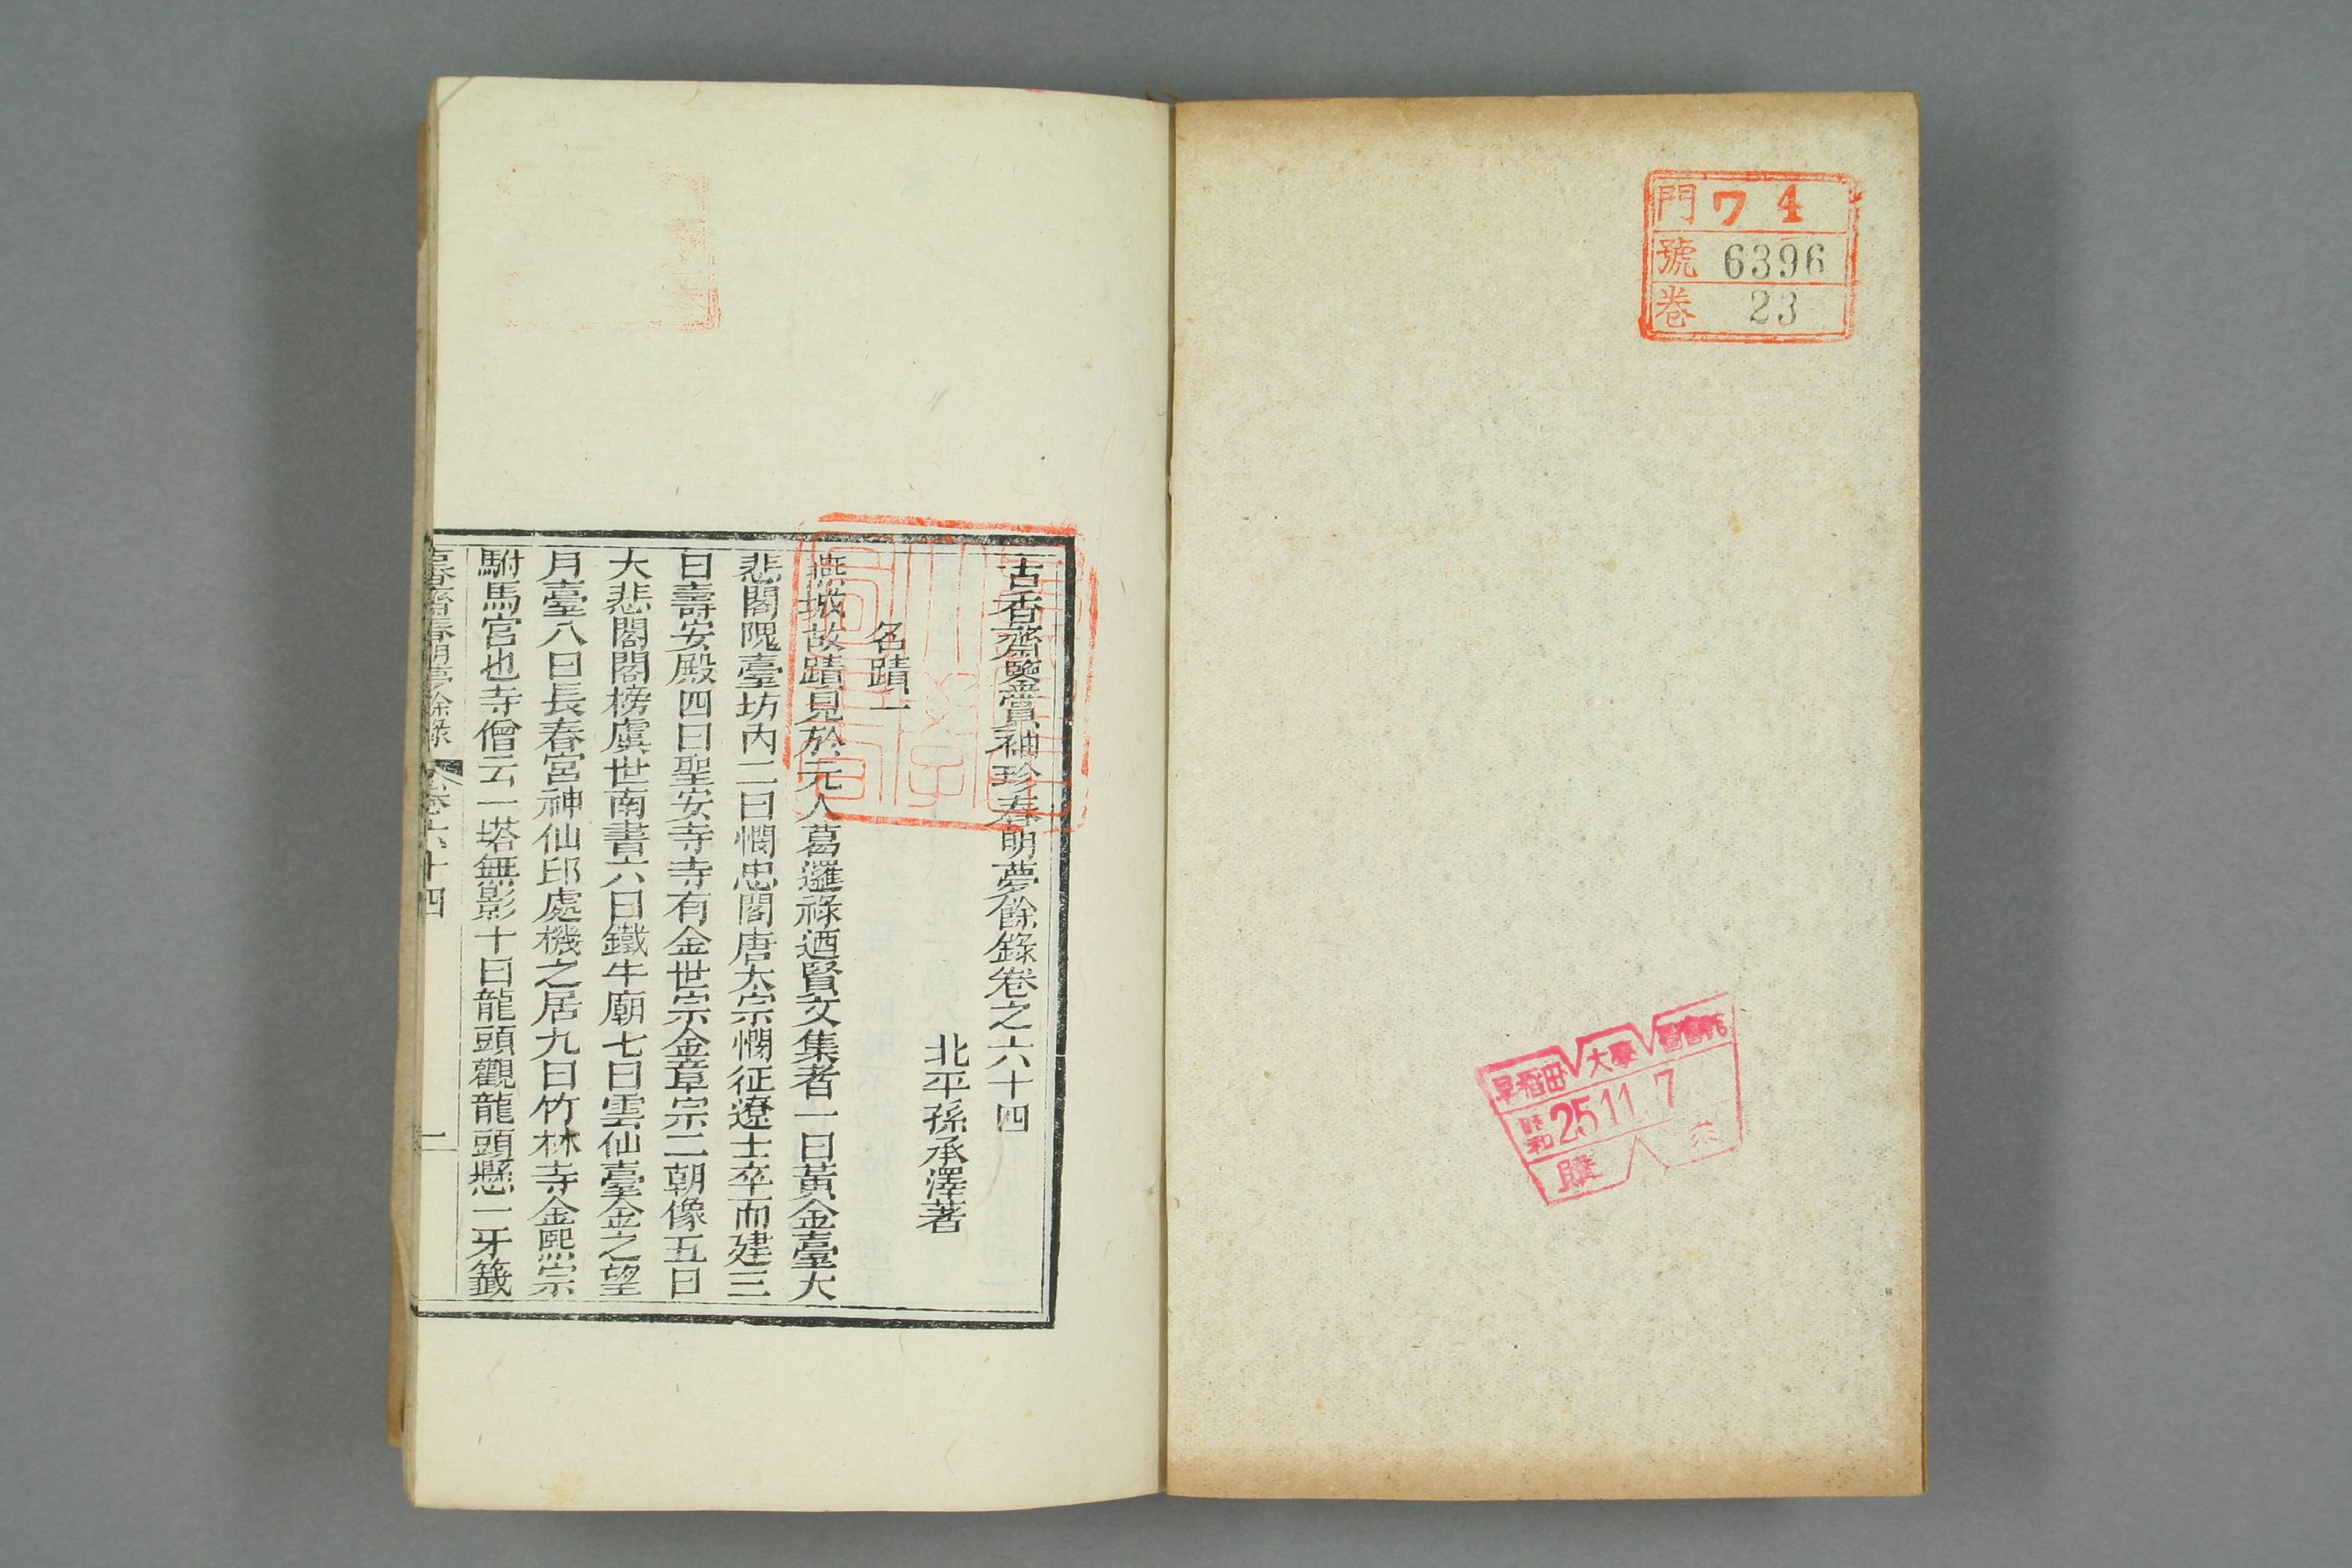 門 ワ 4
號 6396
卷 23
早稻田大學圖書館
昭和 25.11.7
購
古香齋鑒賞袖珍春明夢餘錄卷之六十四
北平孫承澤著
名蹟一
燕城故蹟見於元人葛邏祿迺賢文集者一曰黃金臺大
悲閣隗臺坊內二曰憫忠閣唐太宗憫征遼士卒而建三
曰壽安殿四曰聖安寺寺有金世宗金章宗二朝像五曰
大悲閣閣榜虞世南書六曰鐵牛廟七曰雲仙臺金之望
月臺八曰長春宮神仙邱處機之居九曰竹林寺金熙宗
駙馬宮也寺僧云一塔無影十曰龍頭觀龍頭懸一牙籤
古香齋春明夢餘錄 卷六十四 一